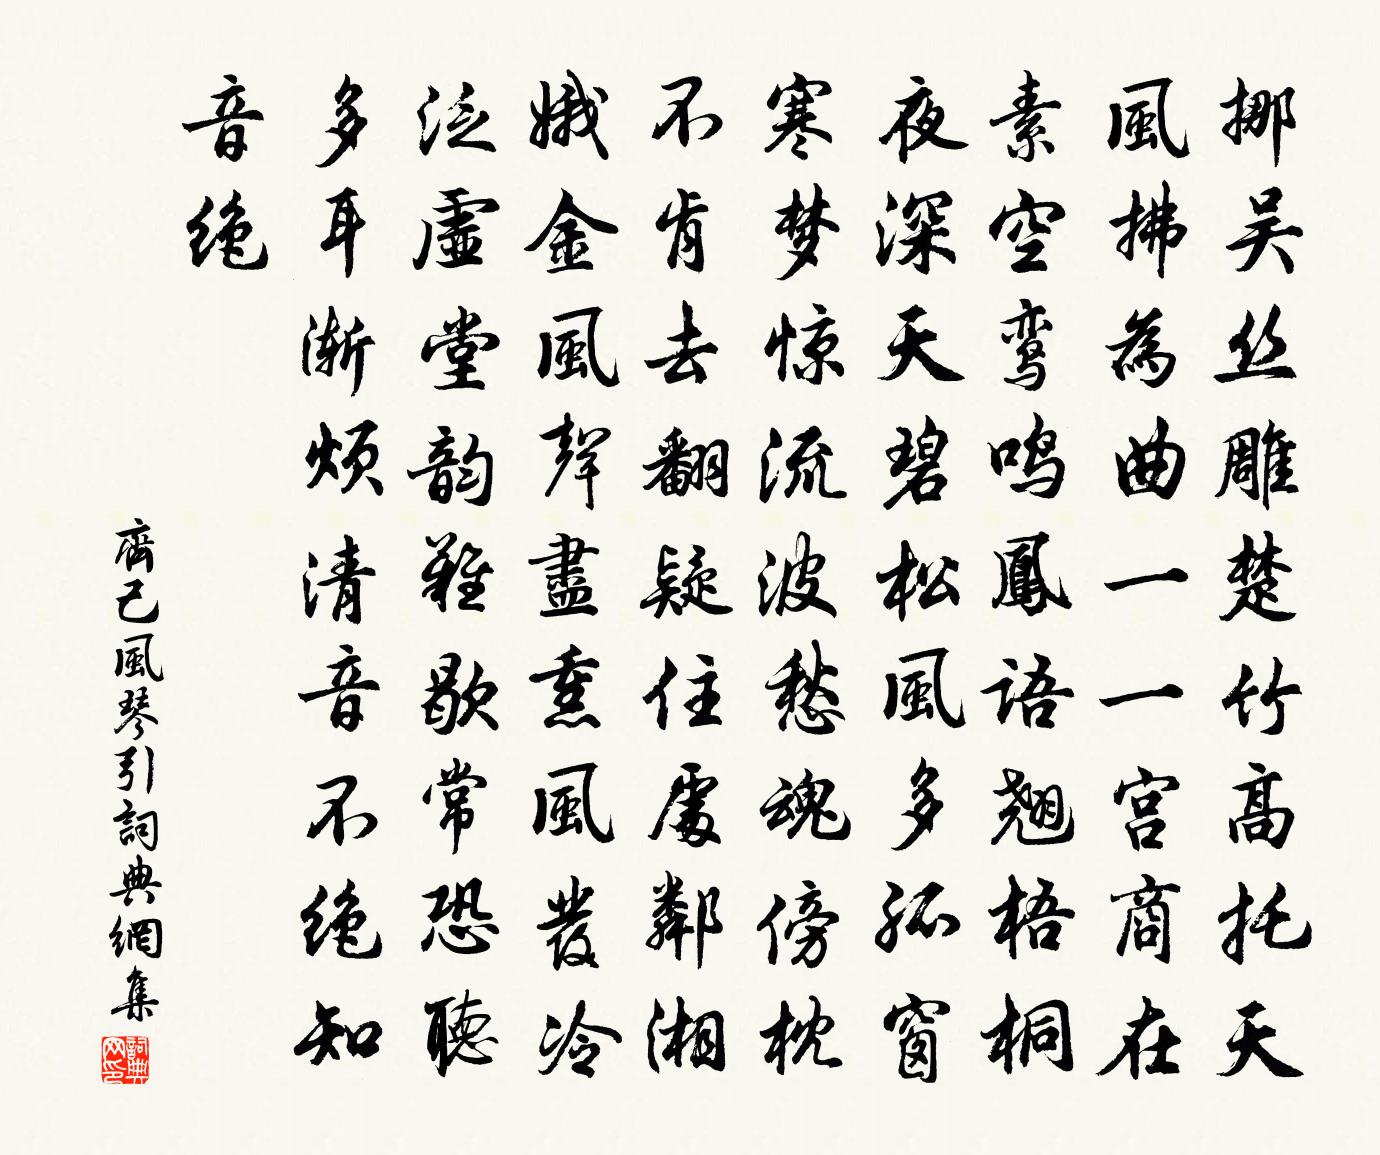 挪吴丝雕楚竹高托天
風拂為曲一一宫商在
素空鸾鸣鳳語翘梧桐
夜深天碧松風多孤窗
寒梦惊流波愁魂傍枕
不肯去翻疑住處鄰湘
娥金風聲盡熏風發冷
泛虛堂韵難歇常恐聽
多耳渐烦清音不绝知
音绝
齊己風琴引詞典網集
詞典网印